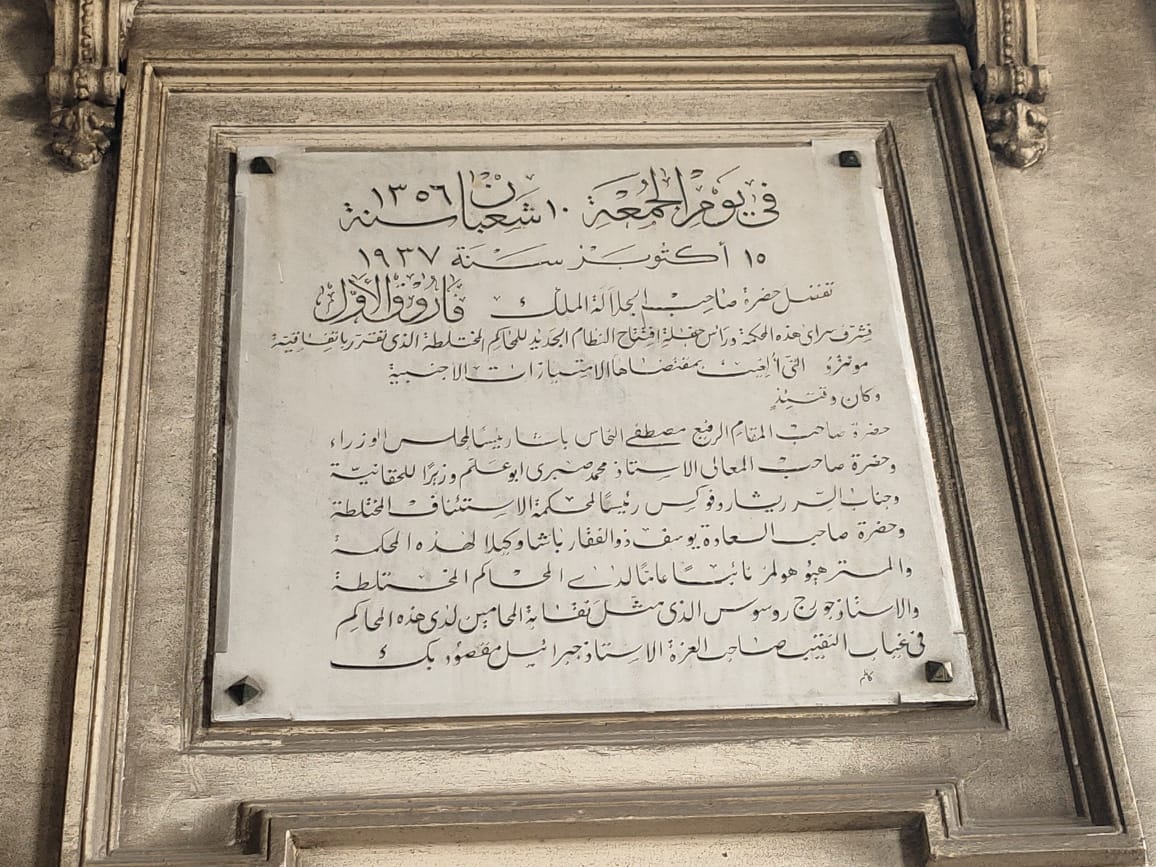 في يوم الجمعة ١٠ شعبان سنة ١٣٥٦
١٥ أكتوبر سنة ١٩٣٧
تفضل حضرة صاحب الجلالة الملك فاروق الأول
فشرف سراى هذه المحكمة ورأس حفلة افتتاح النظام الجديد للمحاكم المختلطة الذى تقرر باتفاقية
مونترو التى ألغيت بمقتضاها الامتيازات الاجنبية
وكان وقتئذ
حضرة صاحب المقام الرفيع مصطفى النحاس باشا رئيسا لمجلس الوزراء
وحضرة صاحب المعالى الاستاذ محمد صبرى ابو علم وزيرا للحقانية
وجناب السر ريشارد فوكس رئيسا لمحكمة الاستئناف المختلطة
وحضرة صاحب السعادة يوسف ذو الفقار باشا وكيلا لهذه المحكمة
والمستر هيو هولمز نائبا عاما لدى المحاكم المختلطة
والاستاذ جورج روسوس الذى مثل نقابة المحامين لدى هذه المحاكم
فى غياب النقيب صاحب العزة الاستاذ جبرائيل مقصود بك